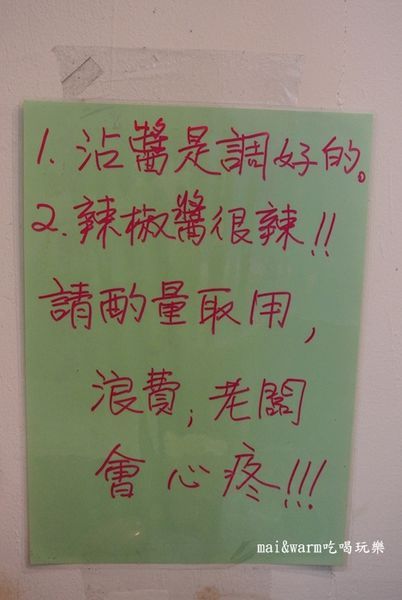 1. 沾醬是調好的。
2. 辣椒醬很辣!!
請酌量取用,
浪費;老闆
會心疼!!!
mai&warm吃喝玩樂